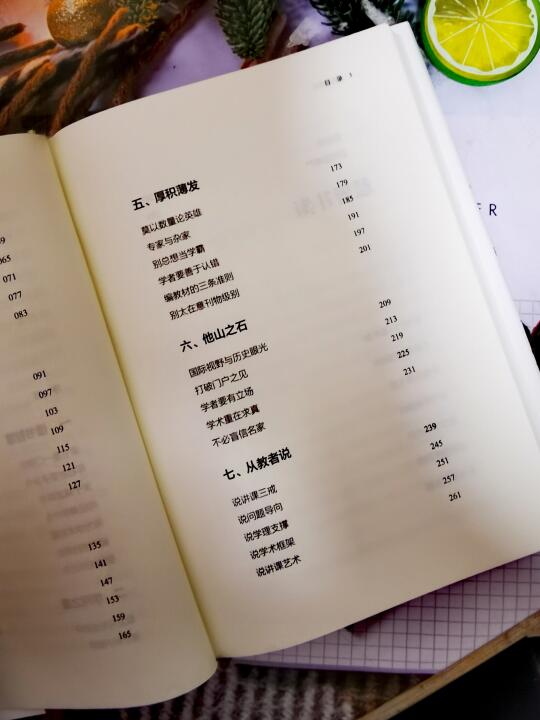 065
071
077
083
091
097
103
109
115
121
127
135
141
147
153
159
165
目 录 3
五、厚积薄发
莫以数量论英雄 173
专家与杂家 179
别总想当学霸 185
学者要善于认错 191
编教材的三条准则 197
别太在意刊物级别 201
六、他山之石
国际视野与历史眼光 209
打破门户之见 213
学者要有立场 219
学术重在求真 225
不必盲信名家 231
七、从教者说
说讲课三戒 239
说问题导向 245
说学理支撑 251
说学术框架 257
说讲课艺术 261
E R